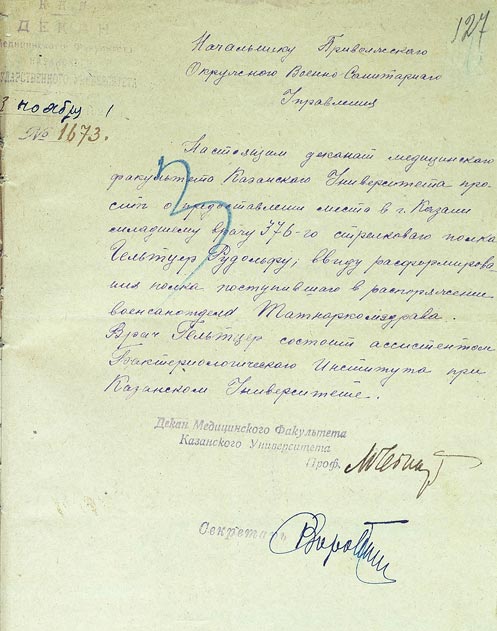 127
ДЕКАН
Медицинского Факультета
ГОСУДАРСТВЕННОГО УНИВЕРСИТЕТА
ноября
№ 1673.
Начальнику Приволжского
Окружного Военно-Санитарного
Управления
Настоящим деканат медицинского
факультета Казанского Университета про-
сит о предоставлении места в г. Казани
младшему врачу 376-го стрелкового полка
Гельтцер Рудольфу, ввиду расформирова-
ния полка поступившего в распоряжение
военсанотдела Татнаркомздрава.
Врач Гельтцер состоит ассистентом
Бактериологического Института при
Казанском Университете.
Декан Медицинского Факультета
Казанского Университета
Проф.
Секретарь